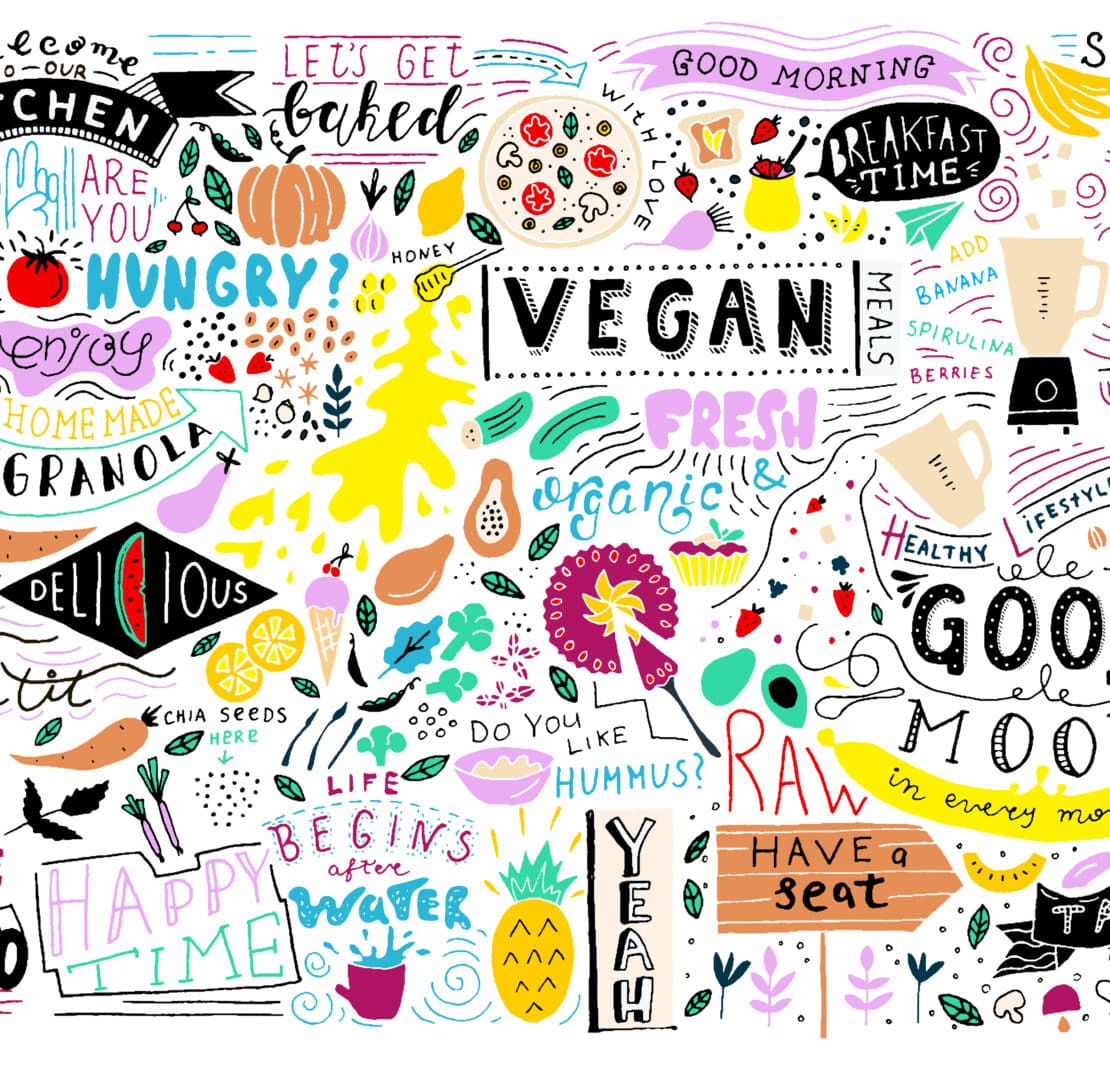 LET'S GET
baked
GOOD MORNING
BREAKFAST
TIME
WITH LOVE
ARE
YOU
HUNGRY?
HONEY
VEGAN
MEALS
ADD
BANANA
SPIRULINA
BERRIES
enjoy
HOMEMADE
GRANOLA
FRESH
&
organic
HEALTHY
LIFESTYLE
DELICIOUS
GOO
MOO
in every mo
CHIA SEEDS
HERE
DO YOU
LIKE
HUMMUS?
RAW
HAVE a
seat
LIFE
BEGINS
after
WATER
HAPPY
TIME
YEAH